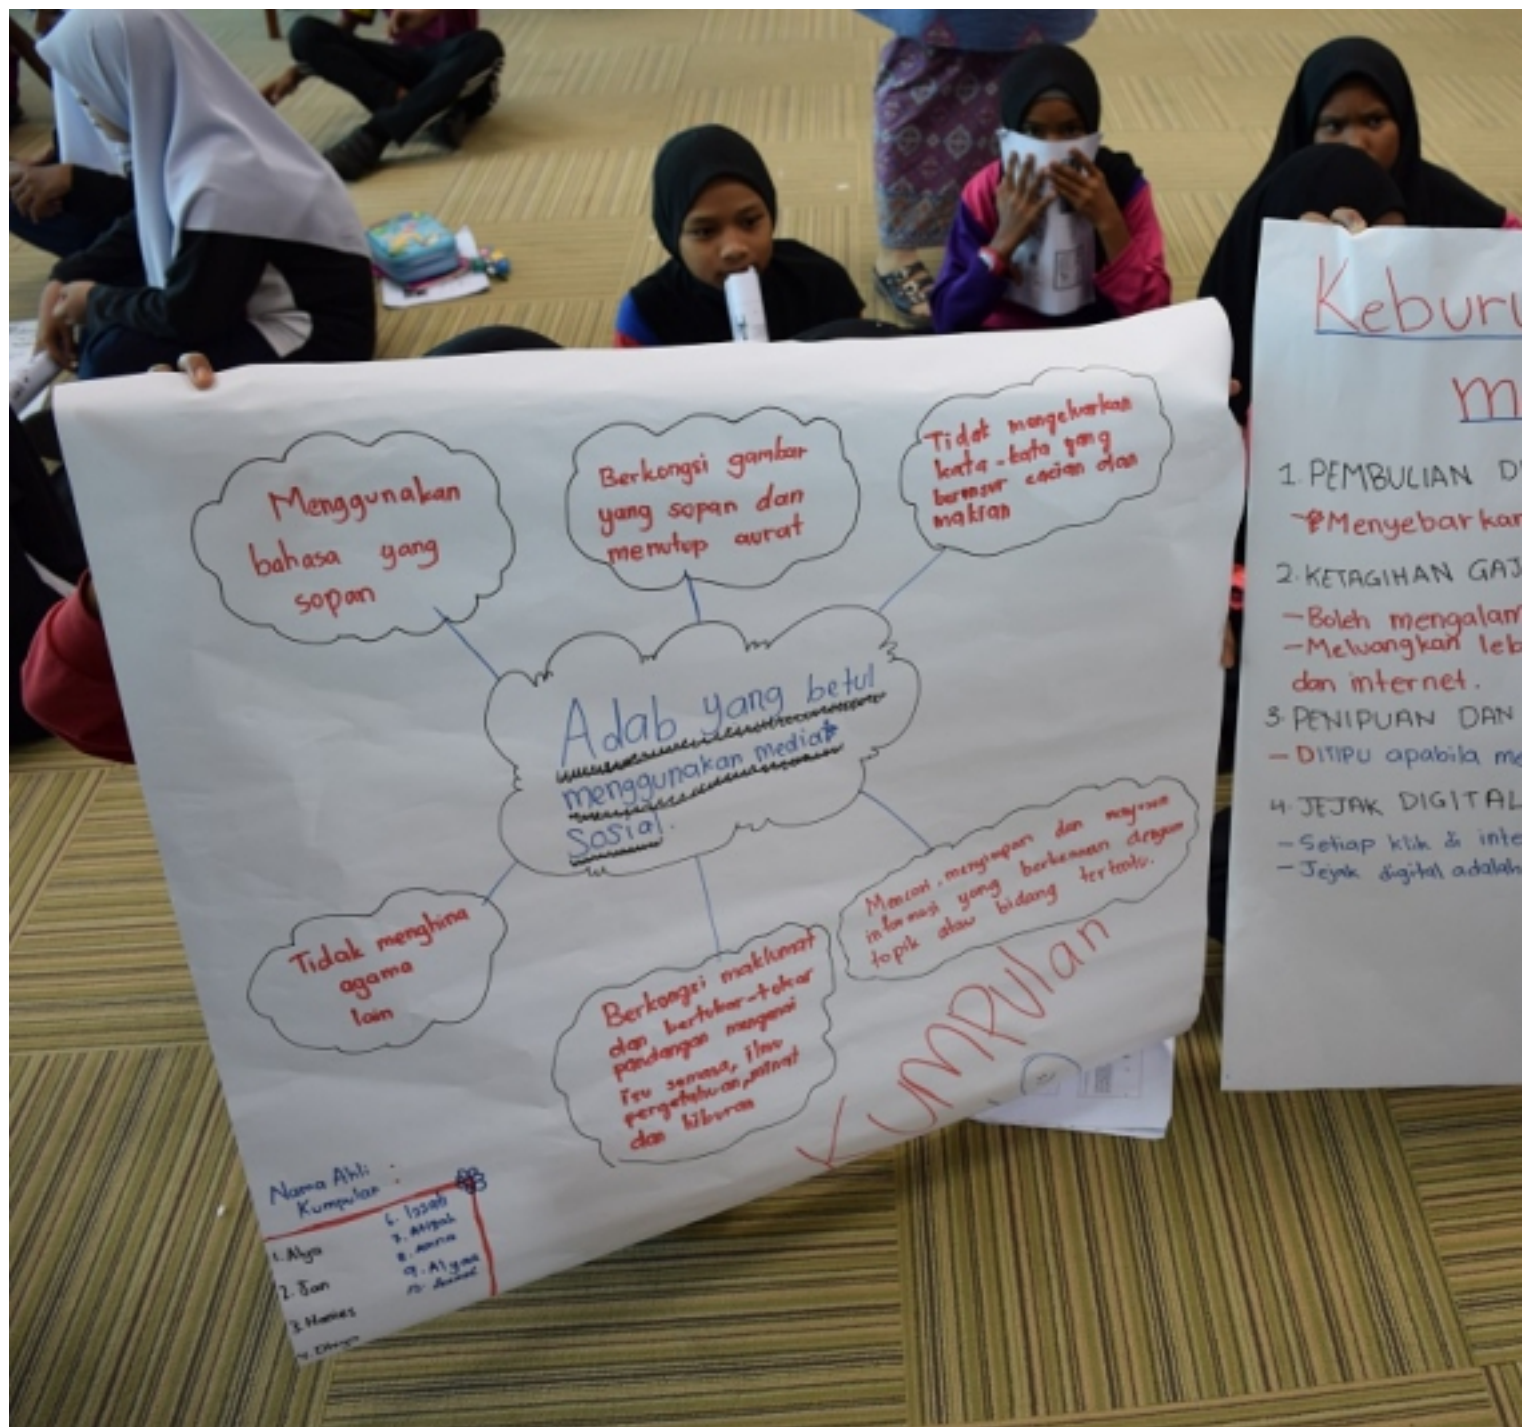 Menggunakan
bahasa yang
sopan
Berkongsi gambar
yang sopan dan
menutup aurat
Tidak mengeluarkan
kata-kata yang
berunsur cacian dan
makian
Adab yang betul
menggunakan media
Sosial.
Tidak menghina
agama
lain
Berkongsi maklumat
dan bertukar-tukar
pandangan mengenai
isu semasa, ilmu
pengetahuan, minat
dan hiburan
Mencari, menyimpan dan
informasi yang berkenaan dengan
topik atau bidang tertentu.
KUMPULan
Nama Ahli :
Kumpulan
1. Alya
2. Jan
3.
6.
7. Atiqah
8.
9. Alyaa
10.
Keburu
m
1. PEMBULIAN D
Menyebarkan
2. KETAGIHAN GAJ
- Boleh mengalam
- Meluangkan leb
dan internet.
3. PENIPUAN DAN
- DITIPU apabila me
4. JEJAK DIGITAL
- Setiap klik di inte
- Jejak digital adalah